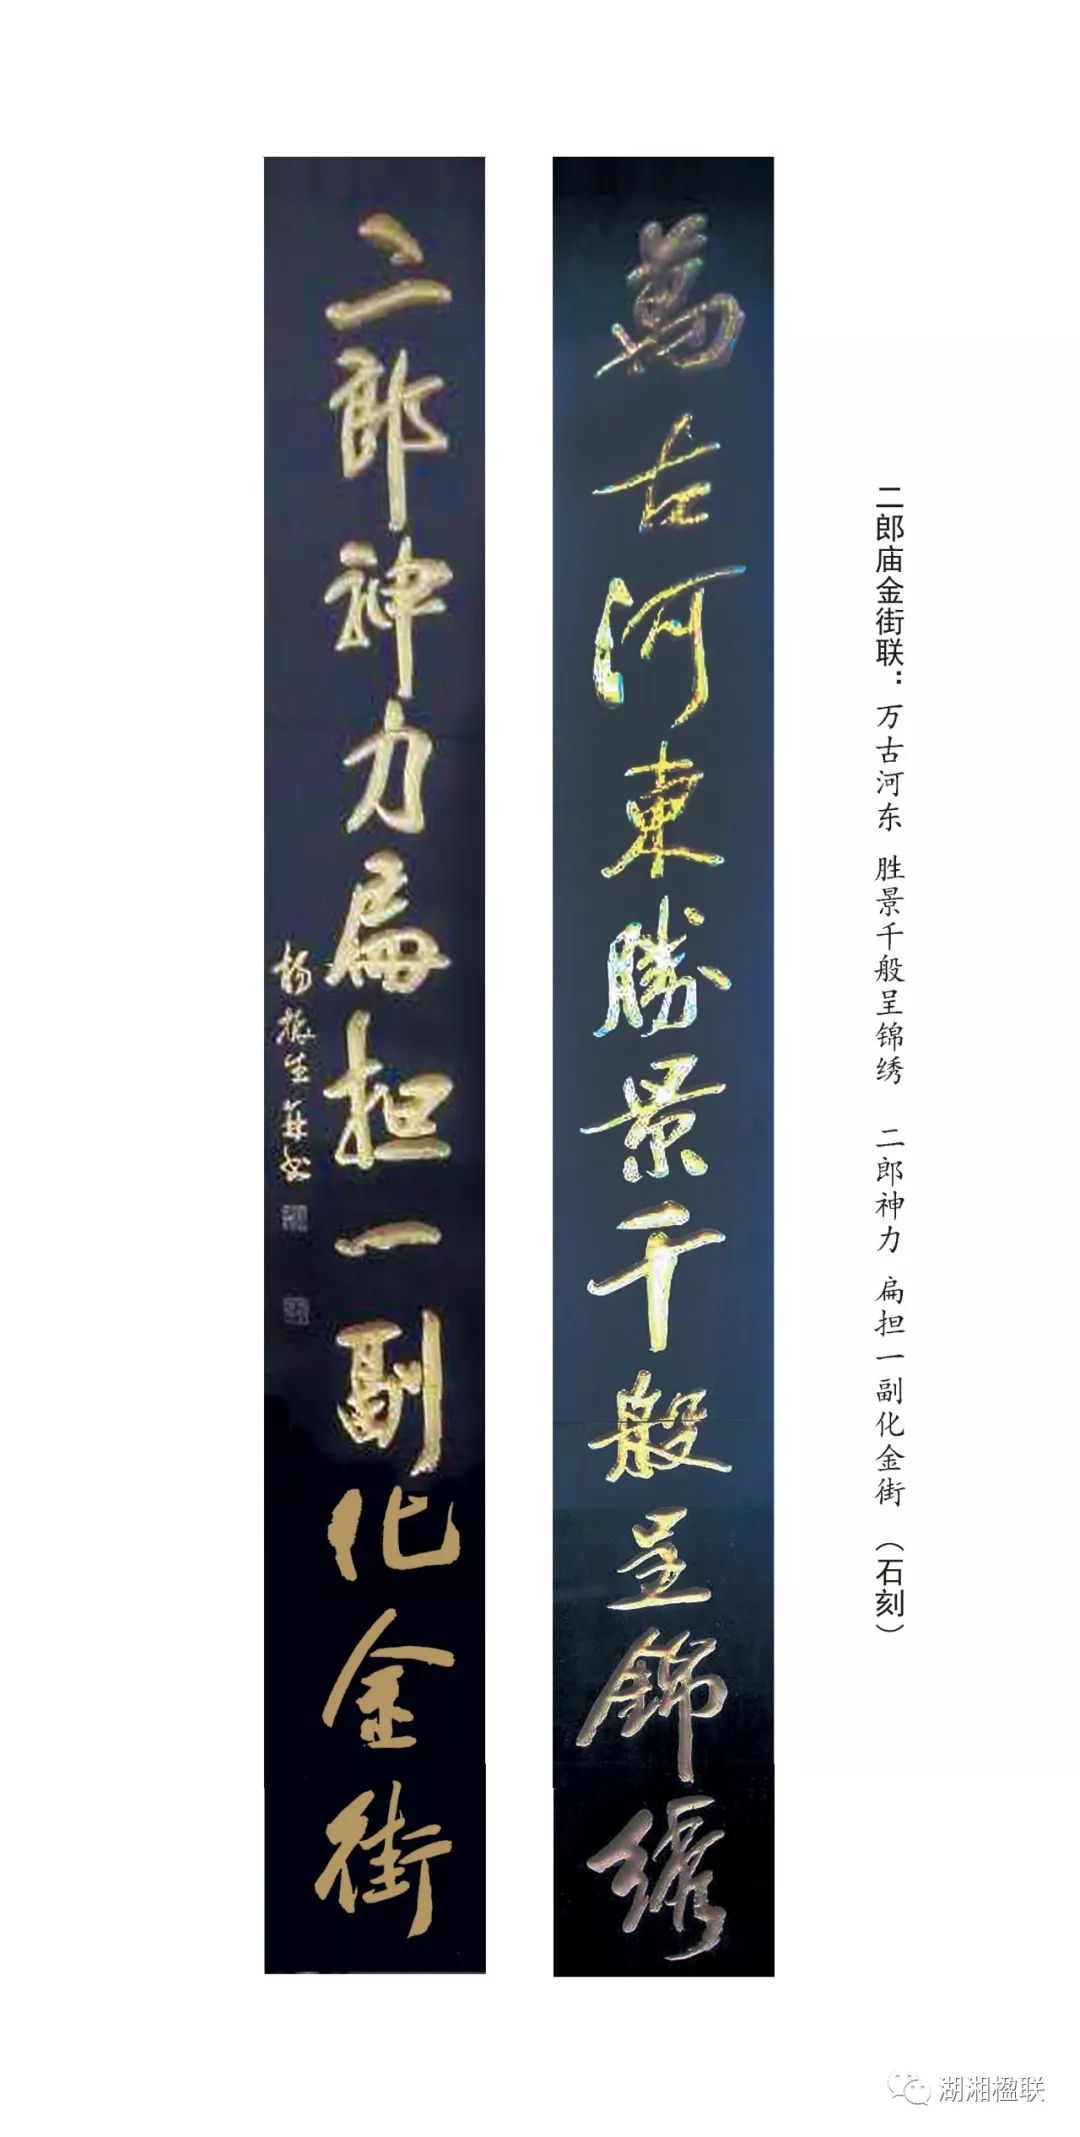 二郎庙金街联：万古河东 胜景千般呈锦绣 二郎神力 扁担一副化金街（石刻）
萬古河東勝景千般呈錦綉
二郎神力扁担一副化金街
杨振生
湖湘楹联